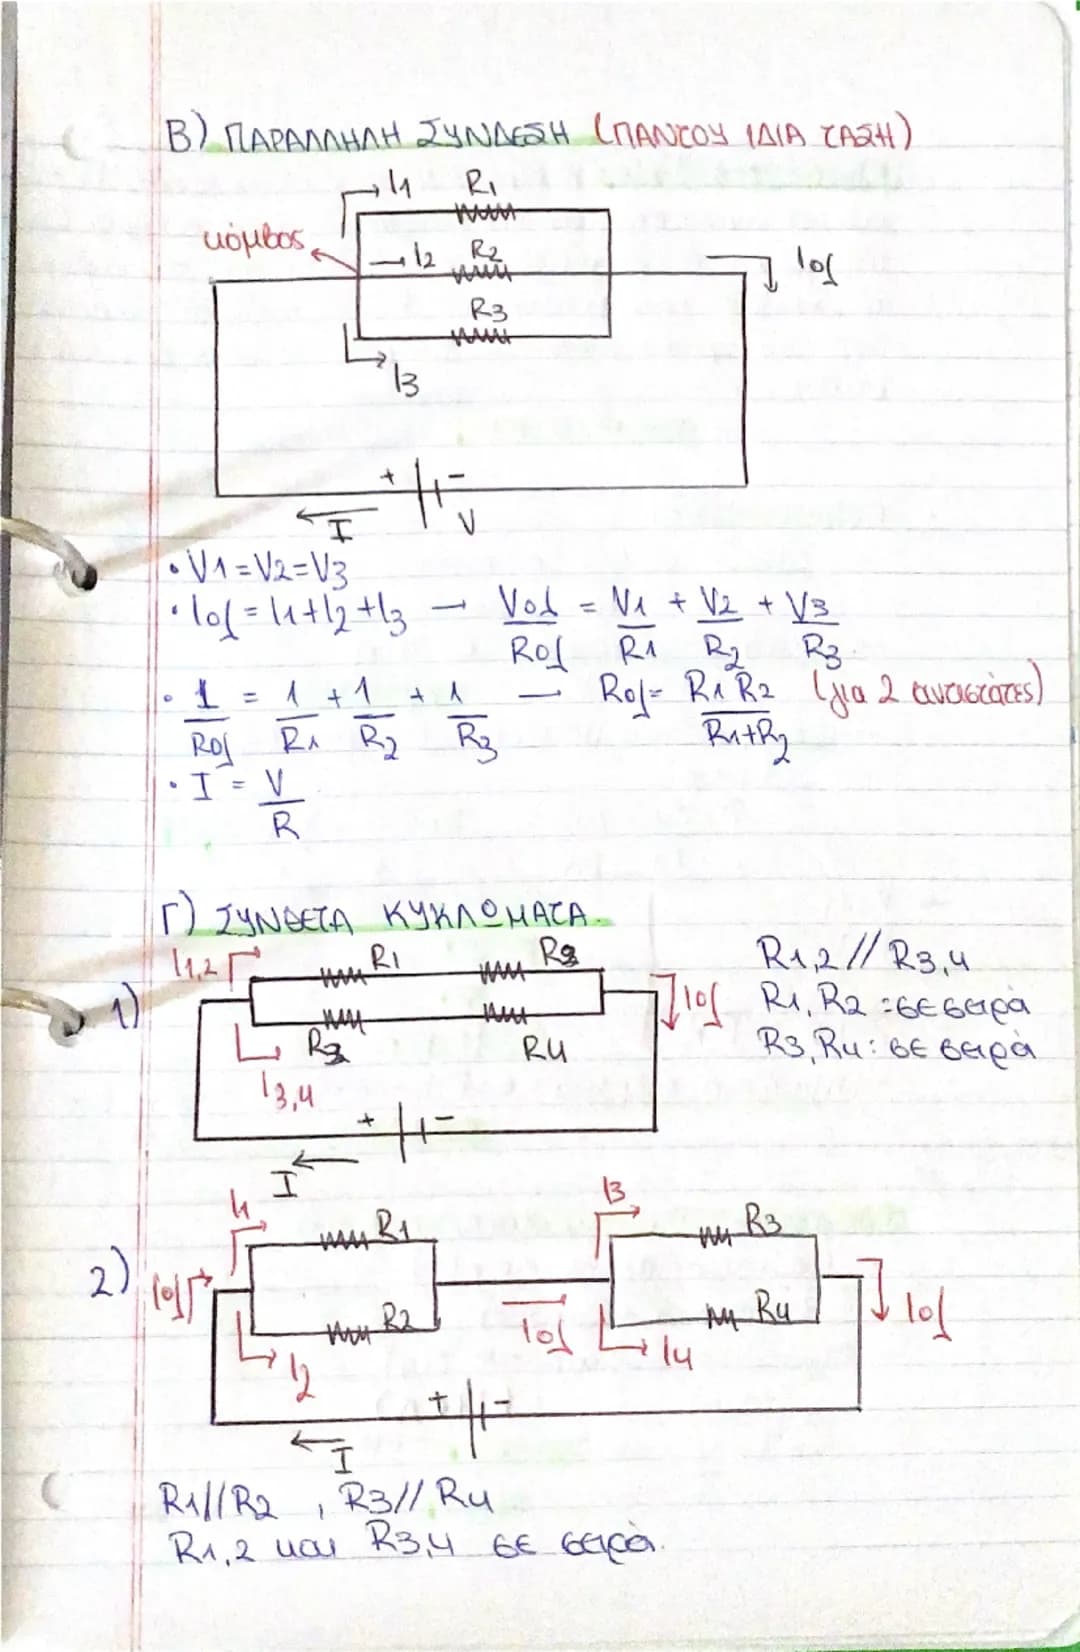 Β) ΠΑΡΑΛΛΗΛΗ ΣΥΝΔΕΣΗ (ΠΑΝΤΟΥ ΙΔΙΑ ΤΑΣΗ)
I1 R1
κόμβος
I2 R2
Iολ
R3
I3
+ -
I V
• V1=V2=V3
• Iολ = I1+I2+I3 → Vολ/Rολ = V1/R1 + V2/R2 + V3/R3
• 1/Rολ = 1/R1 + 1/R2 + 1/R3 → Rολ= R1 R2/R1+R2 (για 2 αντιστάτες)
• I = V/R
Γ) ΣΥΝΘΕΤΑ ΚΥΚΛΩΜΑΤΑ.
1) I1,2 R1 R2
Iολ
R3 R4
I3,4
+ -
I
R1,2 // R3,4
R1, R2 : σε σειρά
R3, R4 : σε σειρά
2) Iολ I1 R1 I3 R3
R2 R4
I2 Iολ I4 Iολ
+ -
I
R1//R2 , R3//R4
R1,2 και R3,4 σε σειρά.